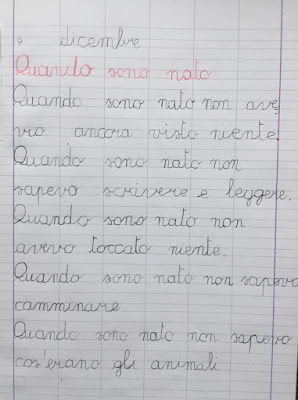 9 dicembre
Quando sono nato
Quando sono nato non ave
vo ancora visto niente.
Quando sono nato non
sapevo scrivere e leggere.
Quando sono nato non
avevo toccato niente.
Quando sono nato non sapevo
camminare.
Quando sono nato non sapevo
cos'erano gli animali